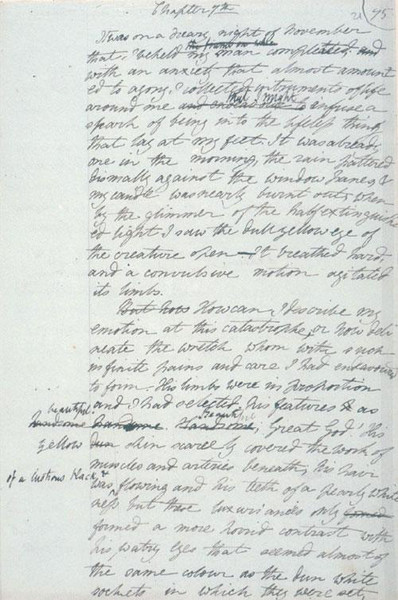 Chapter 7th
21 95
It was on a dreary night of November
that I beheld the frame on whic my man completed and
with an anxiety that almost amount
ed to agony, I collected instruments of life
around me and endeavour to that I might infuse a
spark of being into the lifeless thing
that lay at my feet. It was already
one in the morning, the rain pattered
dismally against the window panes, &
my candle was nearly burnt out, when
by the glimmer of the half extinguish
ed light I saw the dull yellow eye of
the creature open—It breathed hard,
and a convulsive motion agitated
its limbs.
But how How can I describe my
emotion at this catastrophe, or how deli
neate the wretch whom with such
infinite pains and care I had endeavoured
to form. His limbs were in proportion
and I had selected his features & as
beautiful handsome handsome. Handsome; Beautiful; Great God! His
yellow dun skin scarcely covered the work of
muscles and arteries beneath; his hair
of a lustrous black, &
was flowing and his teeth of a pearly white
ness but these luxuriances only formed
formed a more horrid contrast with
his watry eyes that seemed almost of
the same colour as the dun white
sockets in which they were set,